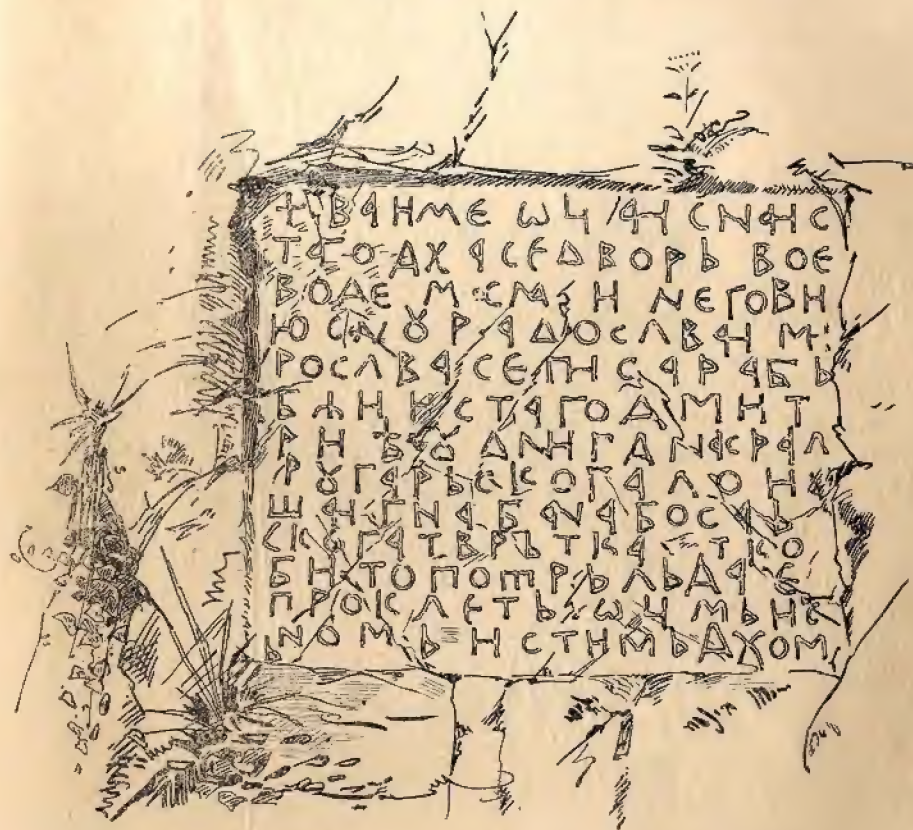 + ВА ИМЕ ѠЦА И СИНА И С
ТАГО ДХА СЕ ДВОРЬ ВОЕ
ВОДЕ М СМ И НЕГОВИ
Ю СИНꙊ РАДОСЛВА И М:
РОСЛВА СЕ ПИСА РАБЬ
БЖИ И СТАГО ДМИТ
РИ Ꙋ ДНИ ГАНА КРАЛ
Ꙋ ГАРЬСКОГА ЛОИ
ША И Г НА БАНА БОСАЬ
СКОГА ТВРЬТКА ТКО
БИ ТО ПОТРЬ ЛЬ ДА Е
ПРОКЛЕТЬ ѠЦМЬ И С
ЬНОМЬ И СТИМЬ ДХОМ